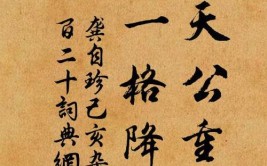 天公重
一格降
龔自珍己亥杂
百二十詞典網